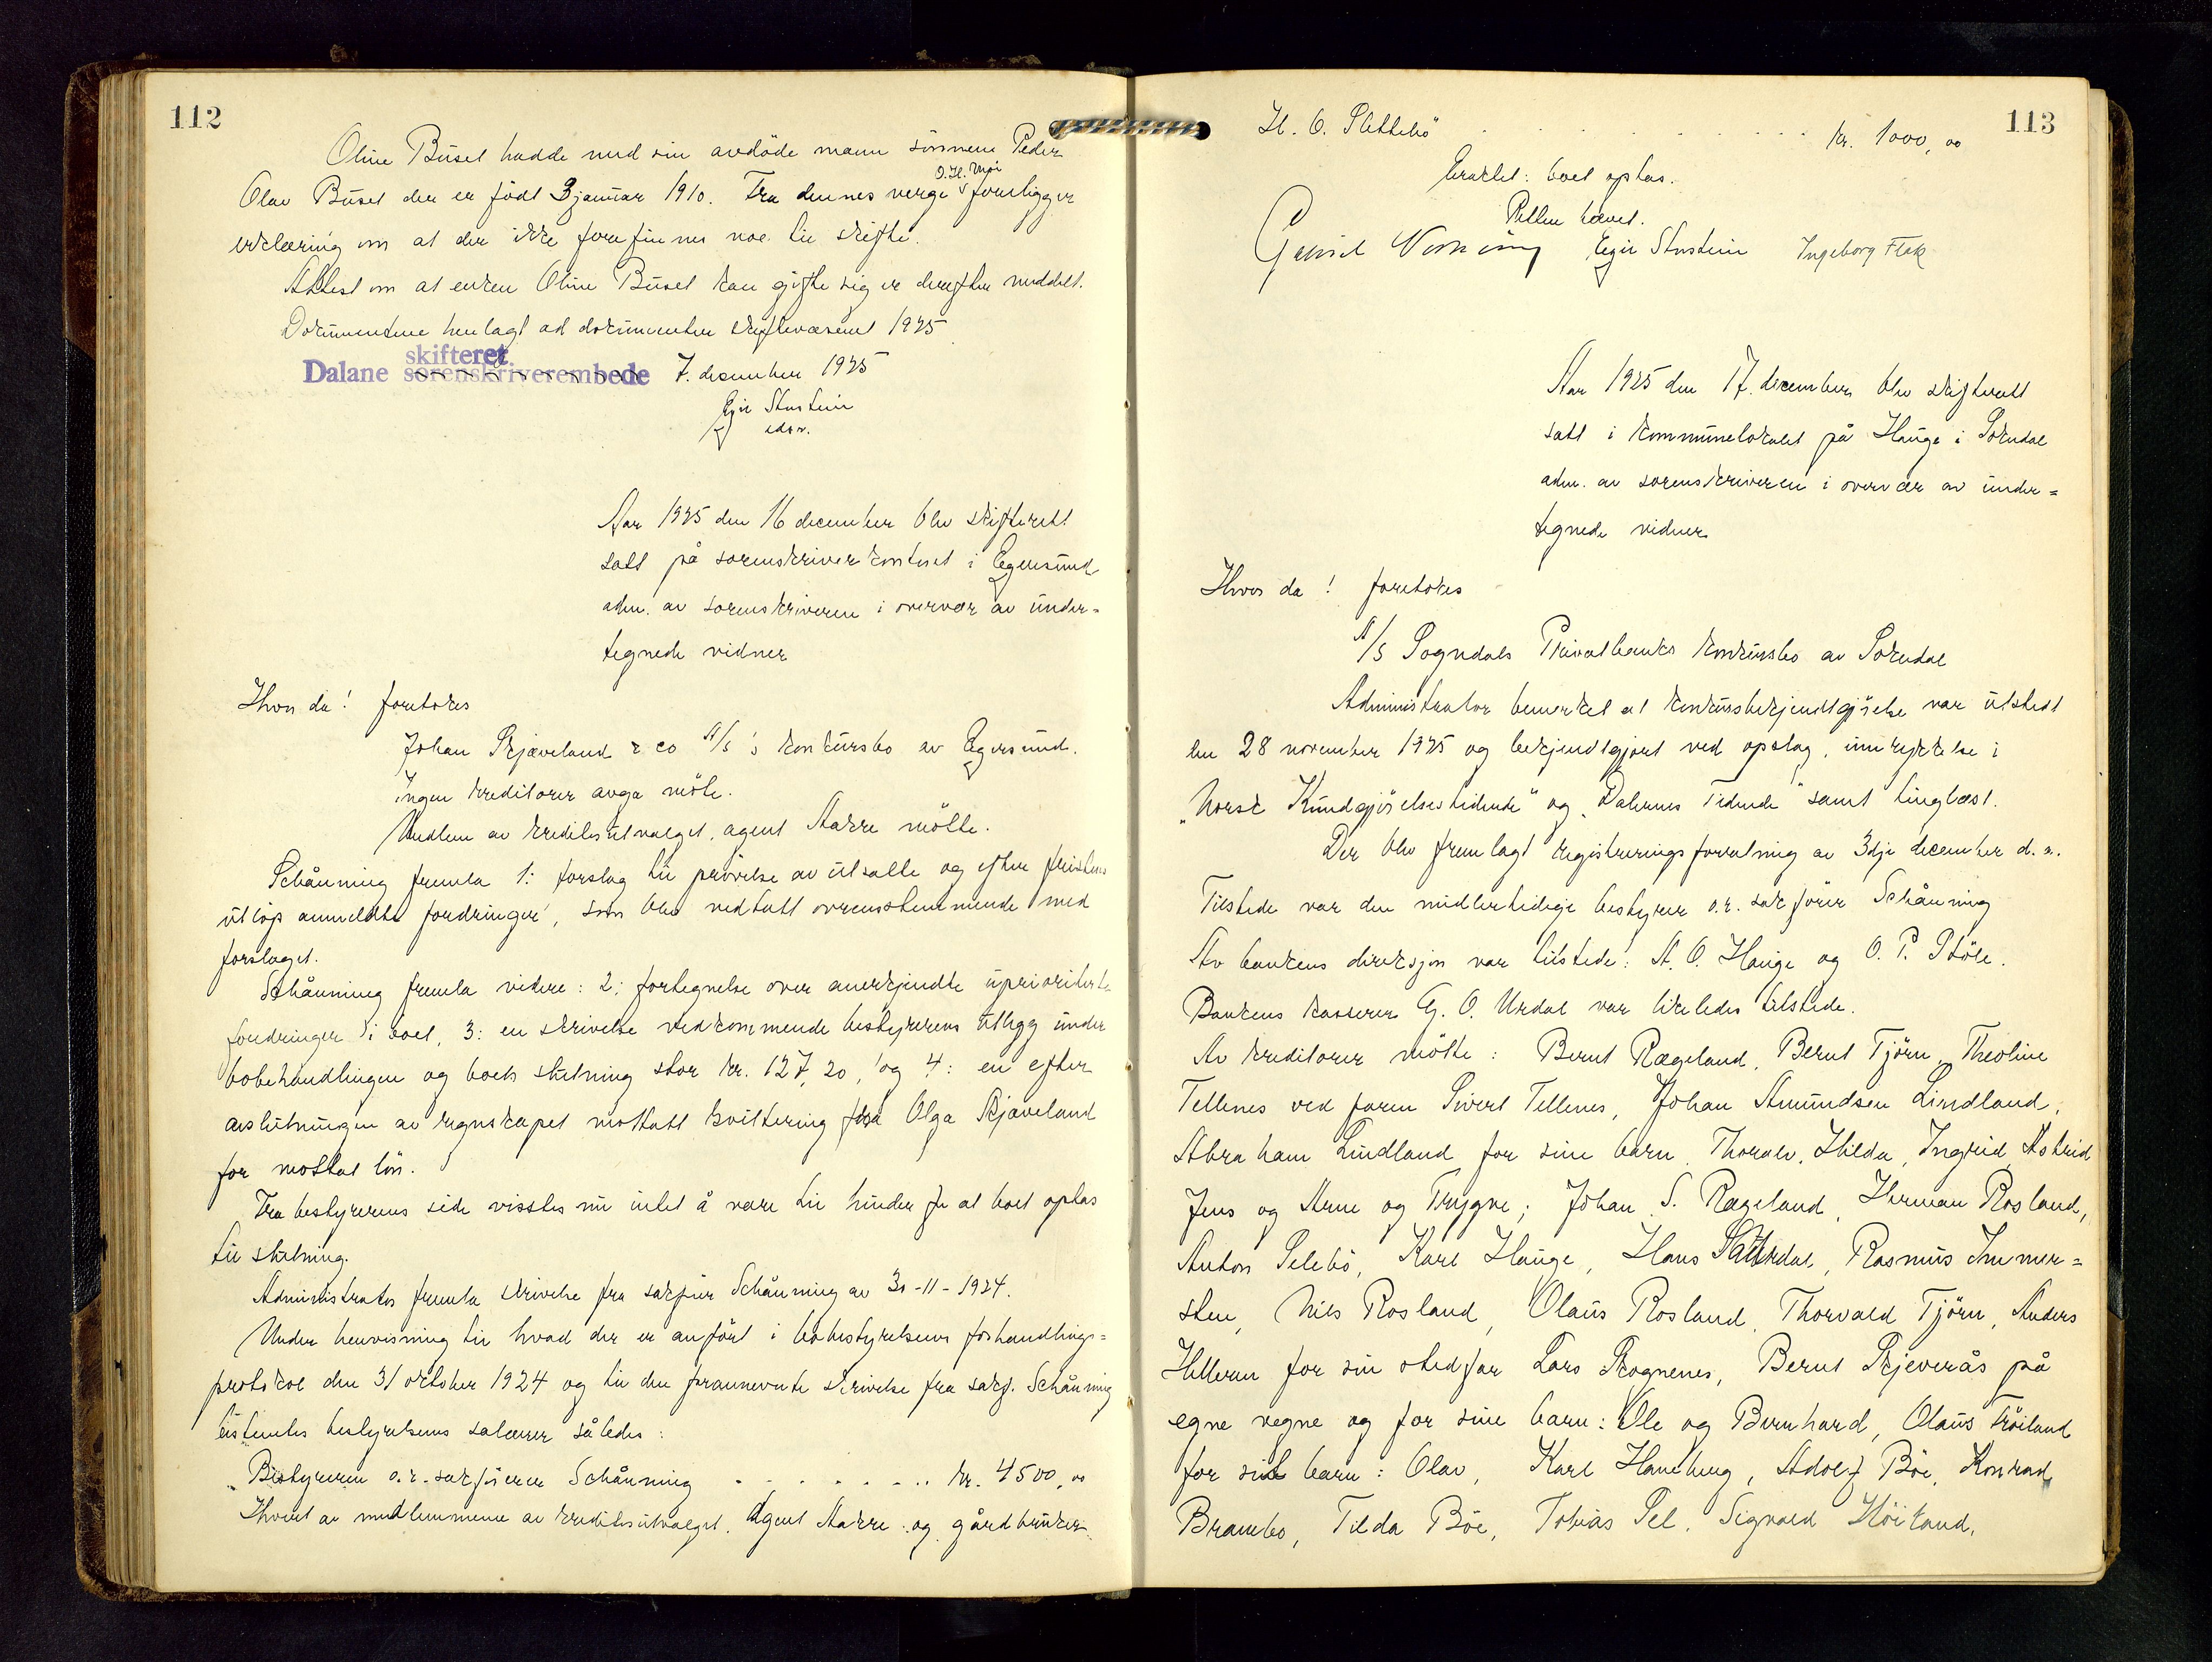 112
Oline Büsel hadde med sin avdöde mann sönnen Peder
O. H. Moi
Olav Büsel der er födt 3 januar 1910. Fra dennes verge foreligger
erklæring om at der ikke forefinnes noe til skifte.
Attest om at enken Oline Büsel kan gifte sig er derefter meddelt.
Dokumentene henlagt ad dokumenter skiftevæsenet 1925
skifteret
Dalane sorenskriverembede 7. desember 1925
Egil Stustein
edsv.
Aar 1925 den 16 december blev skifterett
satt på sorenskriverkontoret i Egersund
adm. av sorenskriveren i overvær av under=
tegnede vidner
Hvor da! foretokes
Johan Skjæveland & co A/S's konkursbo av Egersund.
Ingen kreditorer avga möte.
Medlem av kreditutvalget, agent Aakre mötte.
Schånning fremla 1: forslag til prövelse av utsatte og efter fristens
utlöp anmeldte fordringer, som blev vedtatt overensstemmende med
forslaget.
Schånning fremla videre: 2: fortegnelse over anerkjendte uprioriterte
fordringer i boet, 3: en skrivelse vedkommende bestyrerens utlegg under
bobehandlingen og boets slutning stor kr. 127,20, og 4: en efter
avslutningen av regnskapet mottatt kvittering fra Olga Skjæveland
for mottat lön.
Fra bestyrerens side visstes nu intet å være til hinder for at boet optas
til slutning.
Administrator fremla skrivelse fra sakförer Schånning av 30-11-1924.
Under henvisning til hvad der er anfört i bobestyrelsens forhandlings=
protokol den 31 oktober 1924 og til den forannevnte skrivelse fra sakf. Schånning
bestemtes bestyrelsens salærer således:
"Bestyreren o.r. sakförer Schånning . . . . . . . . kr. 4500,00
Hvert av medlemmene av kreditutvalget, Agent Aakre og gårdbruker
113
H. O. Slettebö . . . . . . . . . . kr. 1000,00
Erachtet: boet optas.
Retten hævet.
Egil Stustein Ingeborg Flak
Aar 1925 den 17. december blev skifterett
satt i kommunelokalet på Hauge i Sokndal
adm. av sorenskriveren i overvær av under=
tegnede vidner
Hvor da! foretokes
A/S Sogndals Privatbanks konkursbo av Sokndal
Administrator bemerket at konkursbekjendtgjörelse var utstedt
den 28 november 1925 og bekjendtgjort ved opslag, innrykkelse i
"Norsk Kundgjörelsestidende" og "Dalernes Tidende" samt tinglæst.
Der blev fremlagt registreringsforretning av 3dje december d.a.
Tilstede var den midlertidige bestyrer o.r. sakförer Schånning
Av bankens direksjon var tilstede: A. O. Hauge og O. P. Stöle.
Bankens kasserer G. O. Urdal var likeledes tilstede.
Av kreditorer mötte: Bernt Rægeland, Bernt Tjörn, Theoline
Tellenes ved faren Sivert Tellenes, Johan Amundsen Lindland,
Abraham Lindland for sine barn Thoralv, Hilda, Ingrid, Astrid
Jens og Arne og Trygve; Johan S. Rægeland, Herman Rosland,
Anton Selebö, Karl Hauge, Hans Sætrdal, Rasmus Immer=
sten, Nils Rosland, Olaus Rosland, Thorvald Tjörn, Anders
Helleren for sin stedfar Lars Skognenes, Bernt Skjeverås på
egne vegne og for sine barn: Ole og Bernhard, Olaus Fröiland
for sit barn: Olav, Karl Haneberg, Adolf Böe, Konrad
Brambo, Tilda Böe, Tobias Sel, Sigvald Höiland,